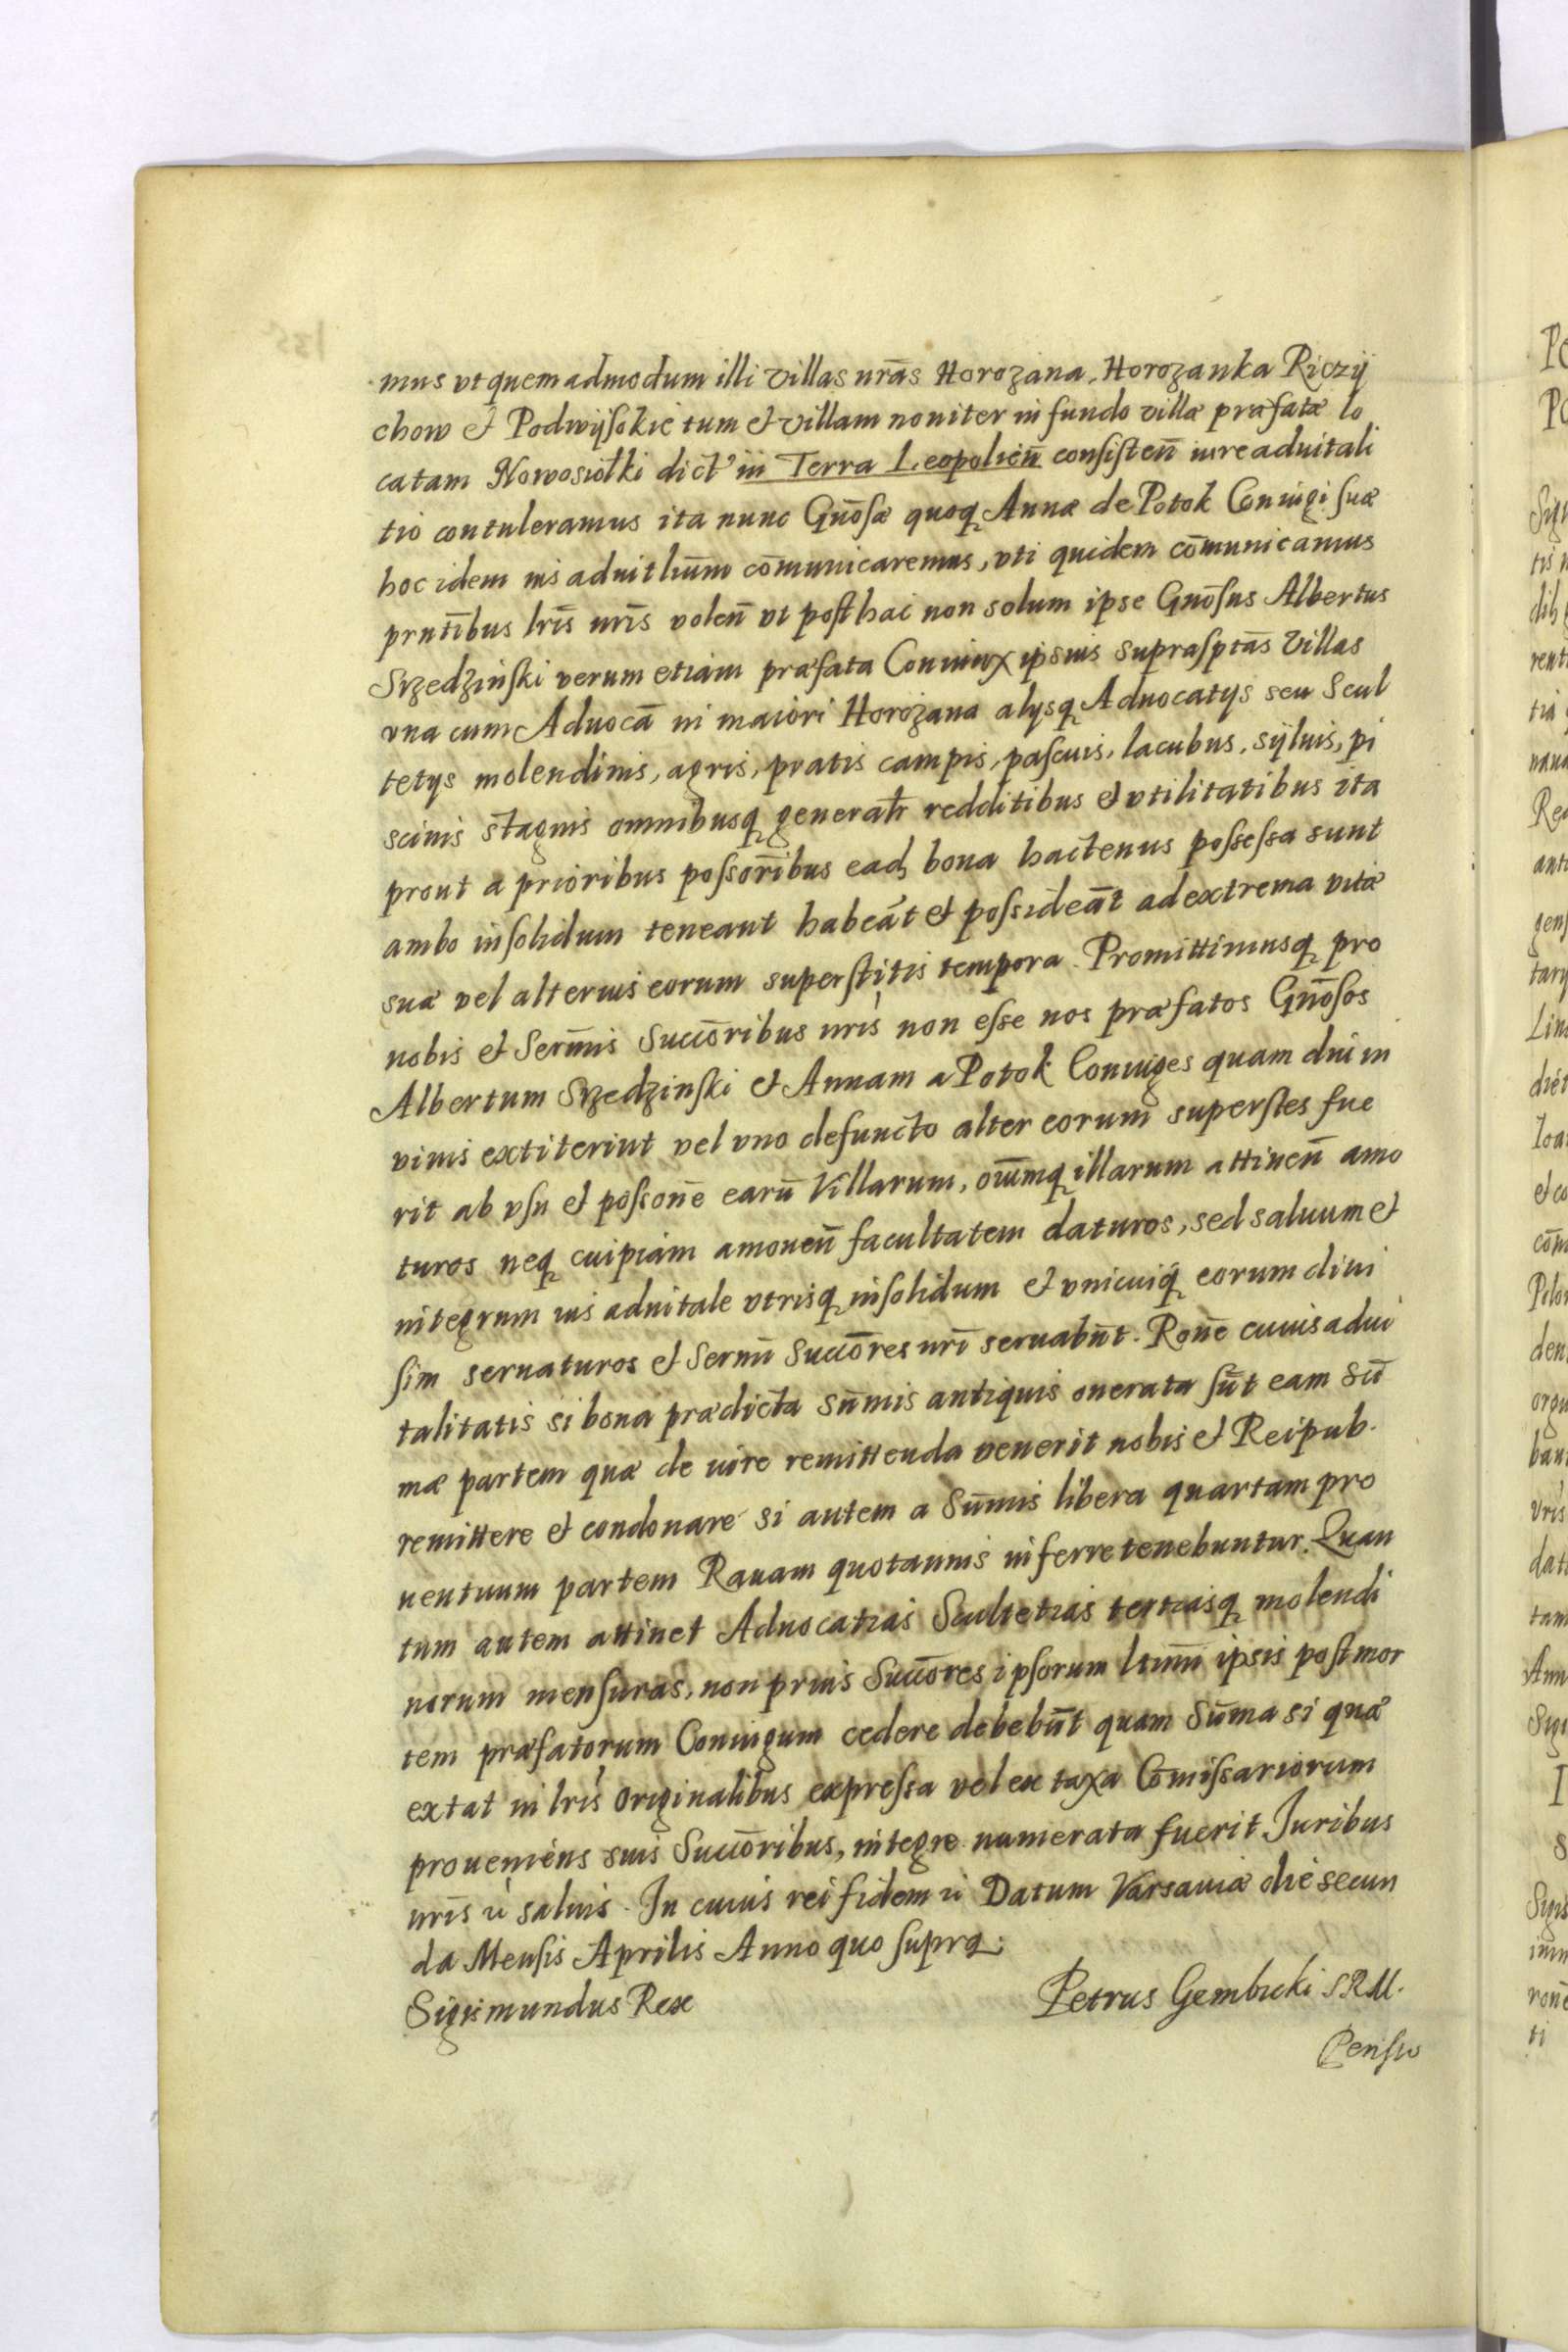 mus vt quemadmodum illi villas nrās Horozana, Horozanka Riczÿ
chow et Podwÿsokie tum et villam noviter in fundo villæ præfatæ lo
catam Nowosiołki dict' in Terra Leopolien̄ consisten̄ iure advitali
tio contuleramus ita nunc Gnōsæ quoq Annæ de Potok Coniugi suæ
hoc idem ius aduitliūm cōmunicaremus, vti quidem cōmunicamus
prntībus lrīs nrīs volen̄ vt posthac non solum ipse Gnōsus Albertus
Srzedzinski verum etiam præfata Coniunx ipsius suprasptās Villas
vna cum Advocā in maiori Horożana alysq Aduocatys seu Scul
tetys molendinis, agris, pratis campis, pascuis, lacubus, sÿluis, pi
scinis stagnis omnibusq generalr̄ redditibus et vtilitatibus ita
prout a prioribus possorībus ead bona hactenus possessa sunt
ambo insolidum teneant habeāt et possideāt ad extrema vitæ
suæ vel alterius eorum superstitis tempora. Promittimusq pro
nobis et Serm̄is Succōribus nrīs non esse nos præfatos Gnōsos
Albertum Srzedzinski et Annam a Potok Coniuges quam diu in
viuis extiterint vel vno defuncto alter eorum superstes fue
rit ab vsu et possonē earū Villarum, oīumq illarum attinen̄ amo
turos neq cuipiam amouen̄ facultatem daturos, sed saluum et
integrum ius aduitale vtrisq insolidum et vnicuiq eorum diui
sim seruaturos et Sermī Succōres nrī seruabūt. Ronē cuius adui
talitatis si bona prædicta sūmis antiquis onerata sūt eam sū
mæ partem quæ de iure remittenda venerit nobis et Reipub.
remittere et condonare si autem a Sūmis libera quartam pro
uentuum partem Rauam quotannis inferre tenebuntur. Quan
tum autem attinet Aduocatias Scultetias tertiasq molendi
norum mensuras, non prius Succōres ipsorum ltimī ipsis post mor
tem præfatorum Coniugum cedere debebūt quam Sūma si quæ
extat in lrīs originalibus expressa vel ex taxa Cōmissariorum
proueniens suis Succōribus, integre numerata fuerit Iuribus
nrīs ū saluis. In cuius rei fidem ū Datum Varsauiæ die secun
da Mensis Aprilis Anno quo supra.
Sigismundus Rex
Petrus Gembicki S R M.